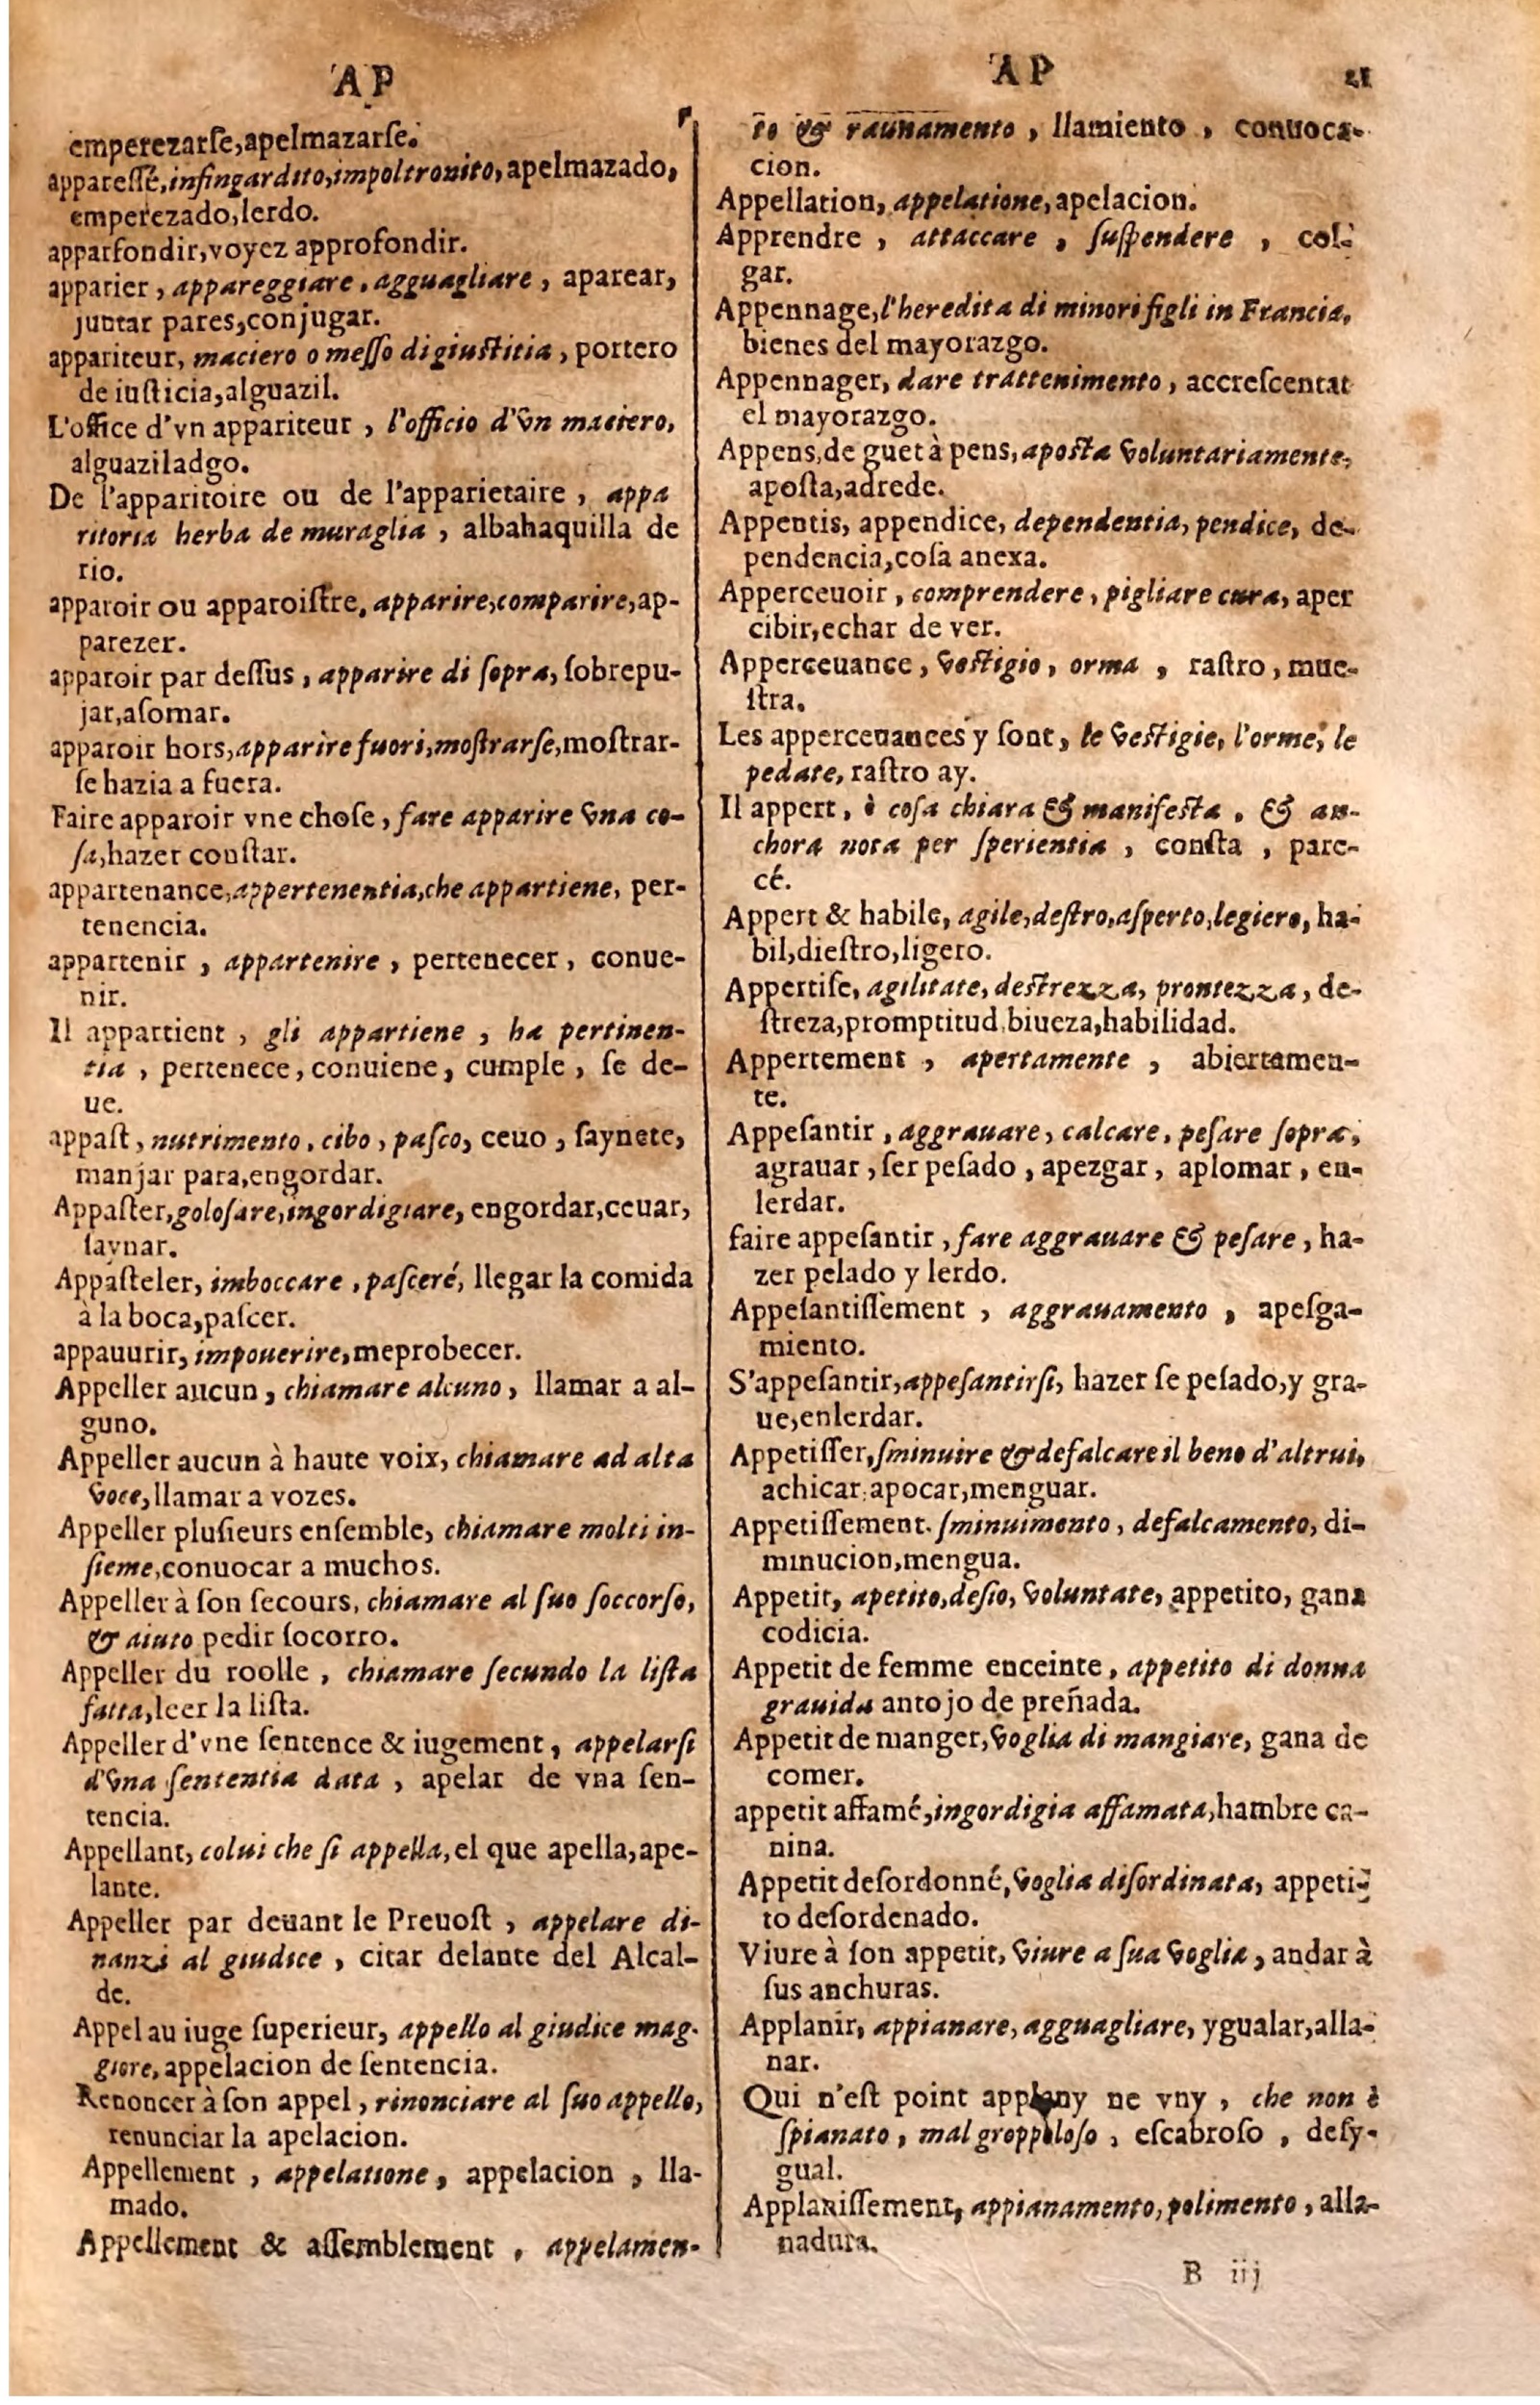 AP
emperezarſe,apelmazarſe.
appareſſé,infingardito,impoltronito,apelmazado,
emperezado,lerdo.
apparfondir,voyez approfondir.
apparier, appareggiare, agguagliare, aparear,
juntar pares,conjugar.
appariteur, maciero o meſſo di giuſtitia, portero
de iuſticia,alguazil.
L'office d'vn appariteur, l'officio d'vn maciero,
alguaziladgo.
De l'apparitoire ou de l'apparietaire, appa
ritoria herba de muraglia, albahaquilla de
rio.
apparoir ou apparoiſtre, apparire,comparire,ap-
parezer.
apparoir par deſſus, apparire di ſopra, ſobrepu-
jar,aſomar.
apparoir hors,apparire fuori,moſtrarſe,moſtrar-
ſe hazia a fuera.
Faire apparoir vne choſe, fare apparire vna co-
ſa,hazer conſtar.
appartenance,appertenentia,che appartiene, per-
tenencia.
appartenir, appartenire, pertenecer, conue-
nir.
Il appartient, gli appartiene, ha pertinen-
tia, pertenece, conuiene, cumple, ſe de-
ue.
appaſt, nutrimento, cibo, paſco, ceuo, ſaynete,
manjar para,engordar.
Appaſter,goloſare,ingordigiare, engordar,ceuar,
ſaynar.
Appaſteler, imboccare, paſceré, llegar la comida
à la boca,paſcer.
appauurir, impouerire,meprobecer.
Appeller aucun, chiamare alcuno, llamar a al-
guno.
Appeller aucun à haute voix, chiamare ad alta
voce,llamar a vozes.
Appeller pluſieurs enſemble, chiamare molti in-
ſieme,conuocar a muchos.
Appeller à ſon ſecours, chiamare al ſuo ſoccorſo,
& aiuto pedir ſocorro.
Appeller du roolle, chiamare ſecundo la liſta
fatta,leer la liſta.
Appeller d'vne ſentence & iugement, appelarſi
d'vna ſententia data, apelar de vna ſen-
tencia.
Appellant, colui che ſi appella, el que apella,ape-
lante.
Appeller par deuant le Preuoſt, appelare di-
nanzi al giudice, citar delante del Alcal-
de.
Appel au iuge ſuperieur, appello al giudice mag-
giore, appelacion de ſentencia.
Renoncer à ſon appel, rinonciare al ſuo appello,
renunciar la apelacion.
Appellement, appelatione, appelacion, lla-
mado.
Appellement & aſſemblement, appelamen-
AP 21
to & raunamento, llamiento, conuoca-
cion.
Appellation, appelatione, apelacion.
Apprendre, attaccare, ſuſpendere, col-
gar.
Appennage,l'heredita di minori figli in Francia,
bienes del mayorazgo.
Appennager, dare trattenimento, accreſcentat
el mayorazgo.
Appens,de guet à pens,apoſta voluntariamente,
apoſta,adrede.
Appentis, appendice, dependentia, pendice, de-
pendencia,coſa anexa.
Apperceuoir, comprendere, pigliare cura, aper
cibir,echar de ver.
Apperceuance, veſtigio, orma, raſtro, mue-
ſtra.
Les apperceuances y ſont, le veſtigie, l'orme, le
pedate, raſtro ay.
Il appert, è coſa chiara & manifeſta, & an-
chora nota per ſperientia, conſta, pare-
cé.
Appert & habile, agile,deſtro,aſperto,legiero, ha-
bil,dieſtro,ligero.
Appertiſe, agilitate, deſtrezza, prontezza, de-
ſtreza,promptitud,biueza,habilidad.
Appertement, apertamente, abiertamen-
te.
Appeſantir, aggrauare, calcare, peſare ſopra,
agrauar, ſer peſado, apezgar, aplomar, en-
lerdar.
faire appeſantir, fare aggrauare & peſare, ha-
zer pelado y lerdo.
Appeſantiſſement, aggrauamento, apeſga-
miento.
S'appeſantir,appeſantirſi, hazer ſe peſado,y gra-
ue,enlerdar.
Appetiſſer,ſminuire & defalcare il beno d'altrui,
achicar,apocar,menguar.
Appetiſſement. ſminuimento, defalcamento, di-
minucion,mengua.
Appetit, apetito,deſio, voluntate, appetito, gana
codicia.
Appetit de femme enceinte, appetito di donna
grauida antojo de preñada.
Appetit de manger, voglia di mangiare, gana de
comer.
appetit affamé,ingordigia affamata,hambre ca-
nina.
Appetit deſordonné, voglia diſordinata, appeti-
to deſordenado.
Viure à ſon appetit, viure a ſua voglia, andar à
ſus anchuras.
Applanir, appianare, agguagliare, ygualar,alla-
nar.
Qui n'eſt point applany ne vny, che non è
ſpianato, mal groppoloſo, eſcabroſo, deſy-
gual.
Applaniſſement, appianamento, polimento, alla-
nadura.
B iij